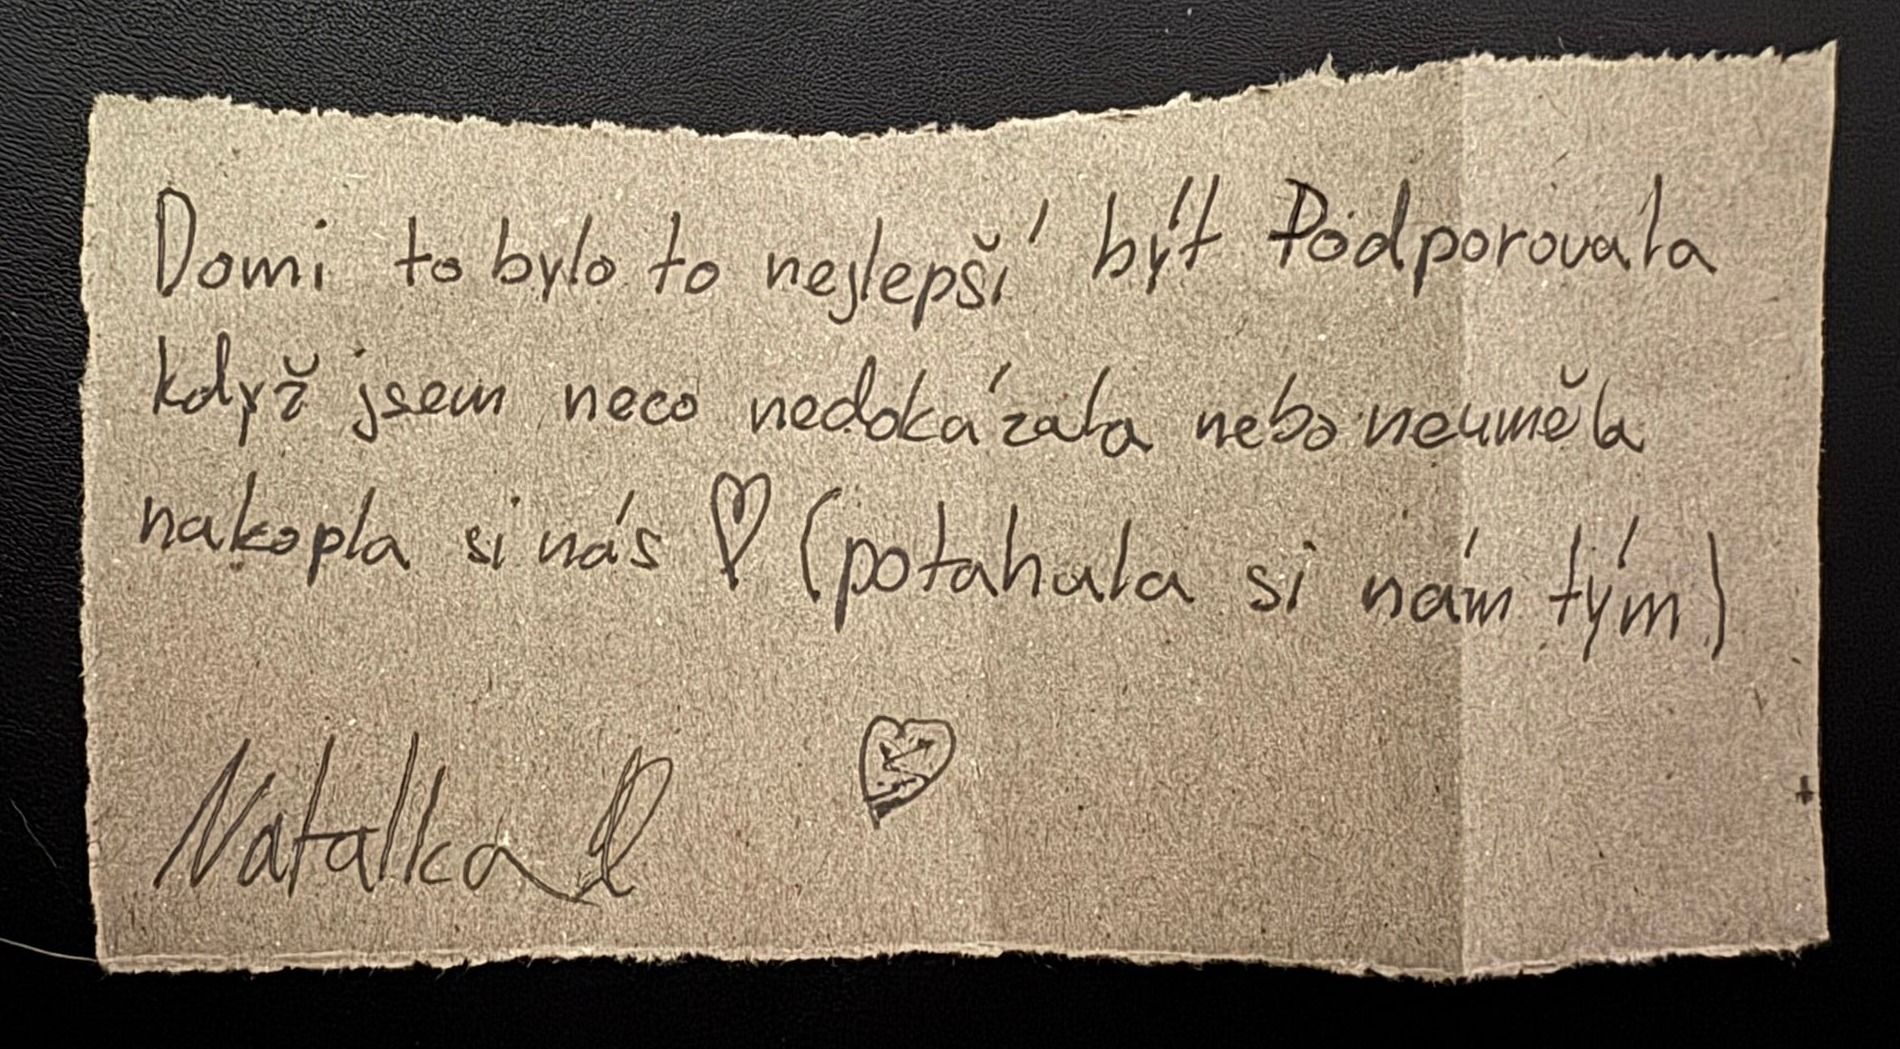 Domi to bylo to nejlepší být Podporovala
když jsem neco nedokázala nebo neuměla
nakopla si nás ♡ (potahala si nám tým)
Natalka